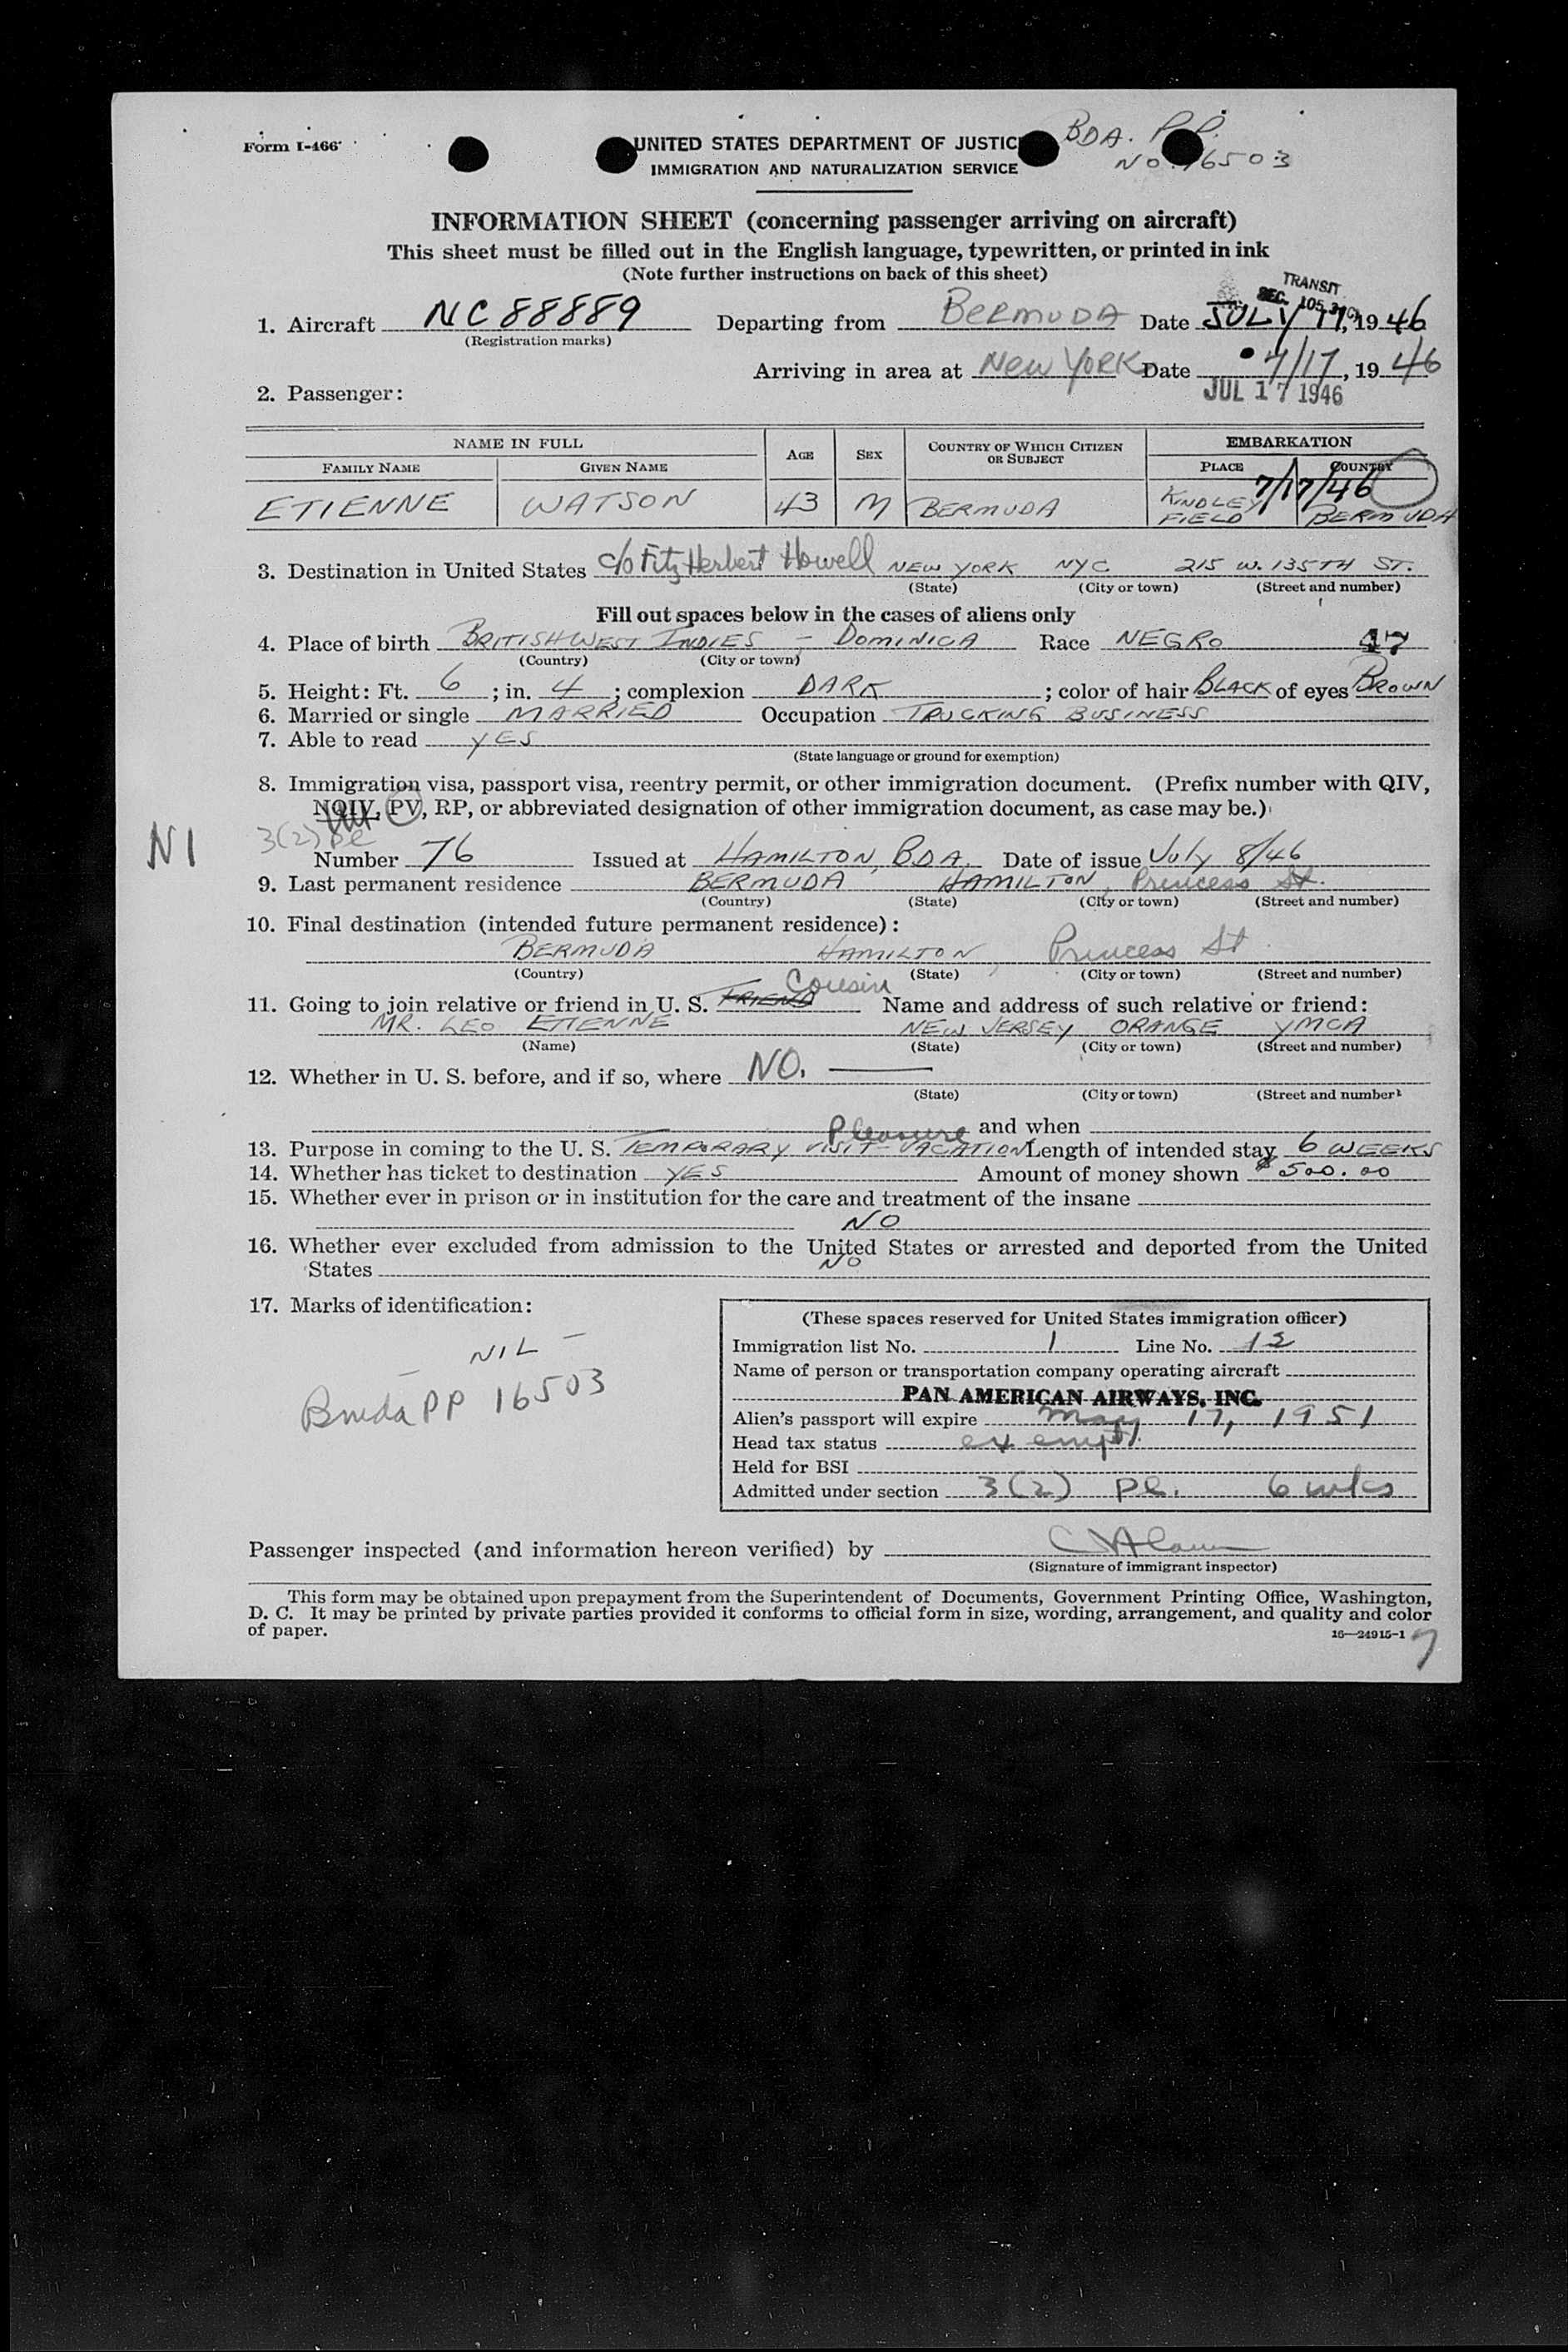 Form I-466
UNITED STATES DEPARTMENT OF JUSTIC
IMMIGRATION AND NATURALIZATION SERVICE
BDA. P.P.
NO. 16503
INFORMATION SHEET (concerning passenger arriving on aircraft)
This sheet must be filled out in the English language, typewritten, or printed in ink
(Note further instructions on back of this sheet)
TRANSIT
SEC. 105.3
1. Aircraft NC 88889 Departing from BERMUDA Date JULY 17, 1946
(Registration marks)
Arriving in area at NEW YORK Date 7/17, 1946
JUL 17 1946
2. Passenger:
NAME IN FULL AGE SEX COUNTRY OF WHICH CITIZEN OR SUBJECT EMBARKATION
FAMILY NAME GIVEN NAME PLACE COUNTRY
7/17/46
ETIENNE WATSON 43 M BERMUDA KINDLEY FIELD BERMUDA
3. Destination in United States c/o Fitz Herbert Howell NEW YORK NYC 215 W. 135TH ST.
(State) (City or town) (Street and number)
Fill out spaces below in the cases of aliens only
4. Place of birth BRITISH WEST INDIES - DOMINICA Race NEGRO 47
(Country) (City or town)
5. Height: Ft. 6 ; in. 4 ; complexion DARK ; color of hair BLACK of eyes BROWN
6. Married or single MARRIED Occupation TRUCKING BUSINESS
7. Able to read YES
(State language or ground for exemption)
8. Immigration visa, passport visa, reentry permit, or other immigration document. (Prefix number with QIV,
NQIV, PV, RP, or abbreviated designation of other immigration document, as case may be.)
N1 3(2) pl
Number 76 Issued at HAMILTON, BDA. Date of issue July 8/46
9. Last permanent residence BERMUDA HAMILTON, Princess St.
(Country) (State) (City or town) (Street and number)
10. Final destination (intended future permanent residence):
BERMUDA HAMILTON, Princess St
(Country) (State) (City or town) (Street and number)
Cousin
11. Going to join relative or friend in U. S. FRIEND Name and address of such relative or friend:
MR. LEO ETIENNE NEW JERSEY ORANGE YMCA
(Name) (State) (City or town) (Street and number)
12. Whether in U. S. before, and if so, where NO.
(State) (City or town) (Street and number)
and when
Pleasure
13. Purpose in coming to the U. S. TEMPORARY VISIT - VACATION Length of intended stay 6 WEEKS
14. Whether has ticket to destination YES Amount of money shown $500.00
15. Whether ever in prison or in institution for the care and treatment of the insane
NO
16. Whether ever excluded from admission to the United States or arrested and deported from the United
States NO
17. Marks of identification:
NIL -
Bmda PP 16503
(These spaces reserved for United States immigration officer)
Immigration list No. 1 Line No. 12
Name of person or transportation company operating aircraft
PAN AMERICAN AIRWAYS, INC.
Alien's passport will expire May 17, 1951
Head tax status exempt
Held for BSI
Admitted under section 3(2) pl. 6 wks
Passenger inspected (and information hereon verified) by
(Signature of immigrant inspector)
This form may be obtained upon prepayment from the Superintendent of Documents, Government Printing Office, Washington,
D. C. It may be printed by private parties provided it conforms to official form in size, wording, arrangement, and quality and color
of paper.
16—24915-1
7